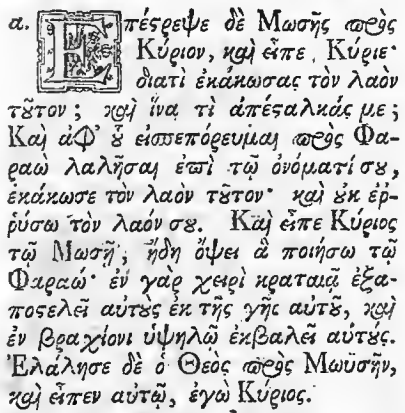 α. Ἐπέϛρεψε δὲ Μωσῆς πρὸς
Κύριον, καὶ εἶπε, Κύριε·
διατί ἐκάκωσας τὸν λαὸν
τȣ͂τον; καὶ ἵνα τὶ ἀπέσαλκάς με;
Καὶ ἀφ' ȣ͗ εἰσπεπόρευμαι πρὸς Φα-
ραὼ λαλῆσαι ἐπὶ τῷ ὀνόματί σȣ,
ἐκάκωσε τὸν λαὸν τȣ͂τον· καὶ ȣ̓κ ἐῤ-
ῥύσω τὸν λαόν σȣ. Καὶ εἶπε Κύριος
τῷ Μωσῇ, ἤδη ὄψει ἃ ποιήσω τῷ
Φαραώ· ἐν γὰρ χειρὶ κραταιᾷ ἐξα-
ποϛελεῖ αὐτȣ̀ς ἐκ τῆς γῆς αὐτȣ͂, καὶ
ἐν βραχίονι ὑψηλῷ ἐκβαλεῖ αὐτȣ́ς.
Ἐλάλησε δὲ ὁ Θεὸς πρὸς Μωϋσῆν,
καὶ εἶπεν αὐτῷ, ἐγὼ Κύριος.